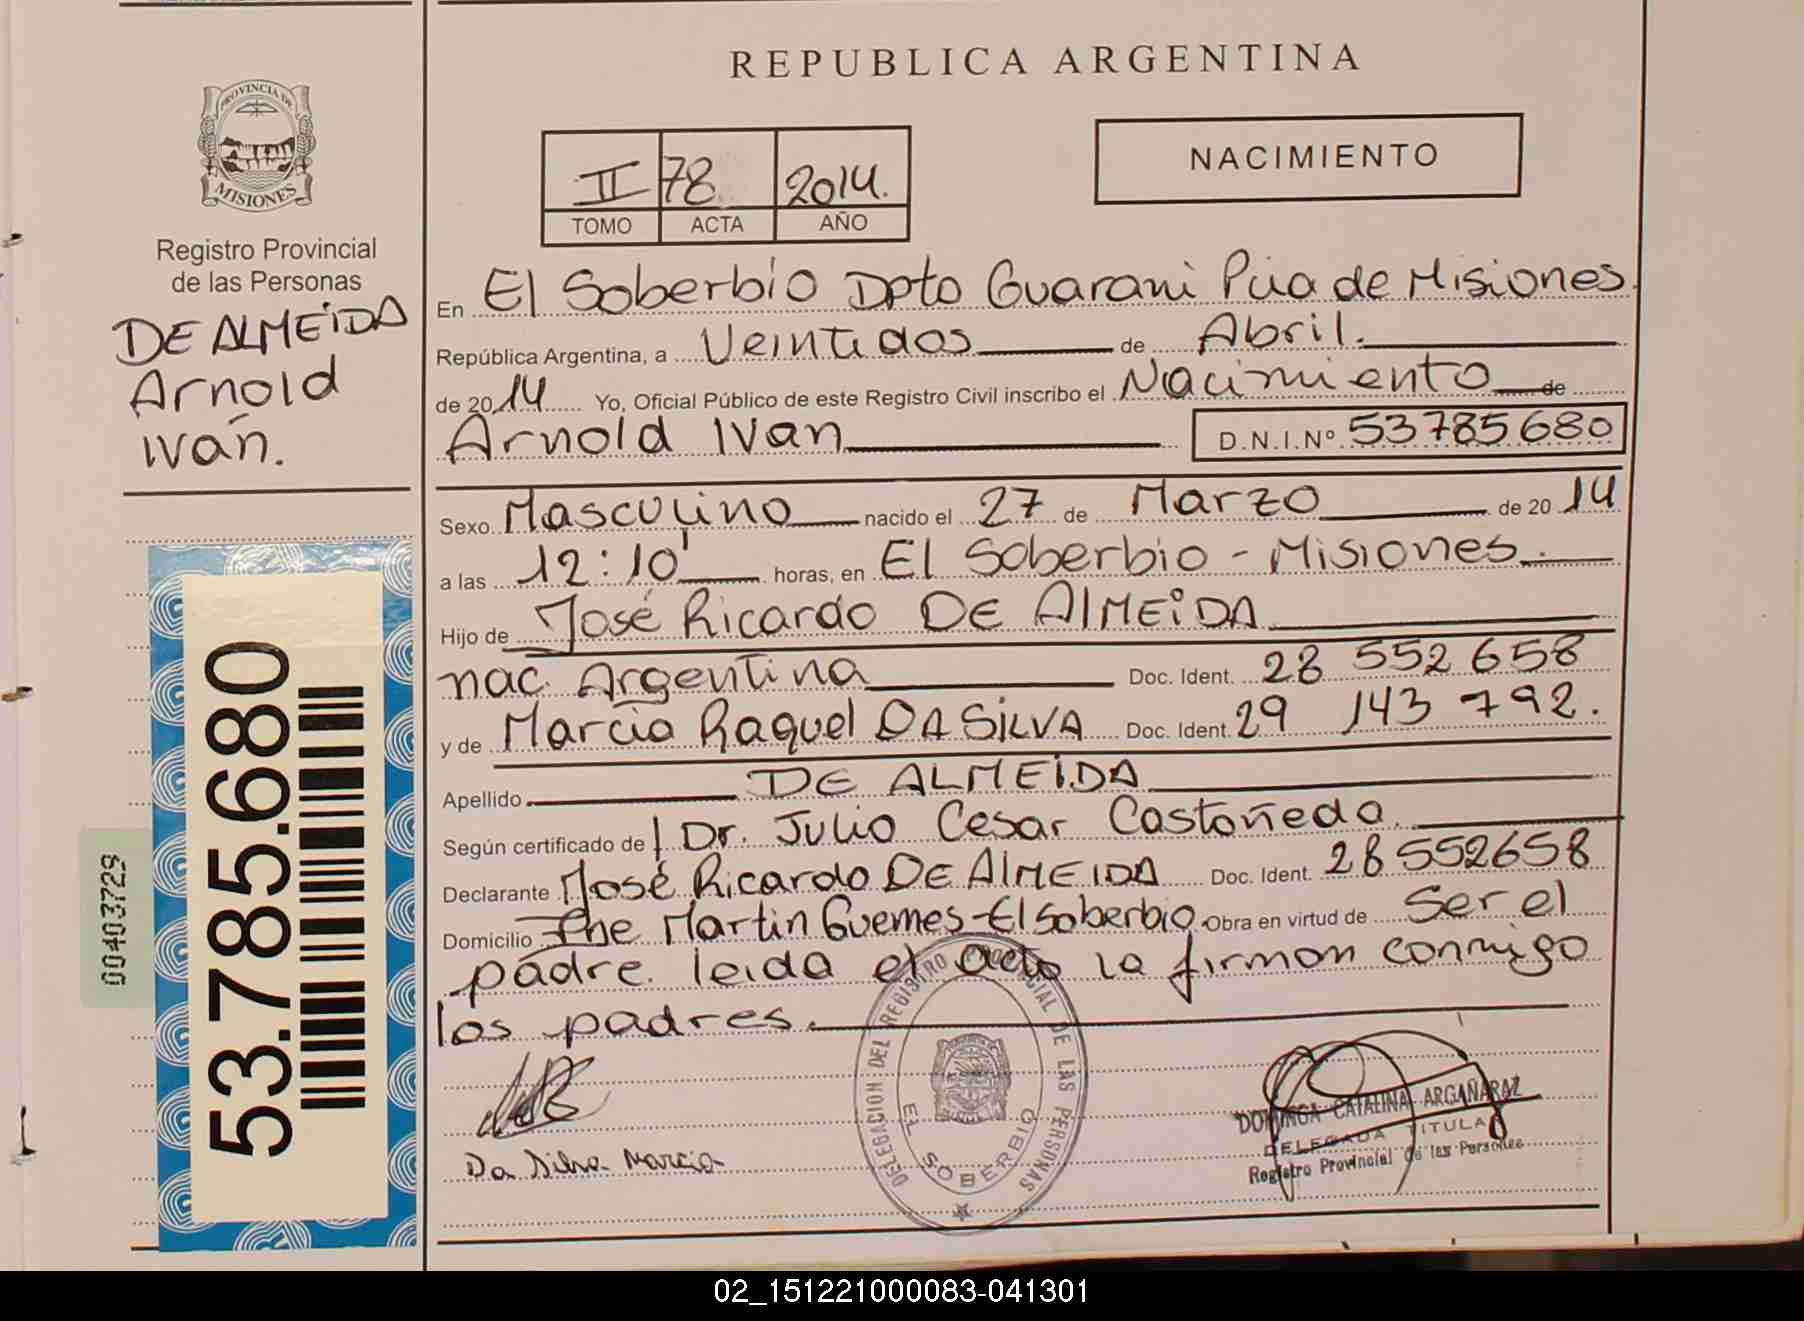 REPUBLICA ARGENTINA
PROVINCIA DE
MISIONES
Registro Provincial
de las Personas
DE ALMEIDA
Arnold
Ivan.
II 78 2014.
TOMO ACTA AÑO
NACIMIENTO
En El Soberbio Dpto Guarani Pcia de Misiones
República Argentina, a Veintidos de Abril.
de 2014 Yo, Oficial Público de este Registro Civil inscribo el Nacimiento de
Arnold Ivan D.N.I.Nº 53785680
Sexo Masculino nacido el 27 de Marzo de 2014
a las 12:10' horas, en El Soberbio - Misiones.
Hijo de José Ricardo DE AlMEiDA
nac. Argentina Doc. Ident. 28 552 658
y de Marcia Raquel DA SiLVA Doc. Ident. 29 143 792.
Apellido DE ALMEiDA
Según certificado de Dr. Julio Cesar Castañeda.
Declarante José Ricardo DE AlMEIDA Doc. Ident. 28 552658
Domicilio Martin Guemes - El Soberbio Obra en virtud de Ser el
padre. leida el acta la firman conmigo
los padres.
Da Silva Marcia
DELEGACION DEL REGISTRO PROVINCIAL DE LAS PERSONAS
EL SOBERBIO
DOMINGA CATALINA ARGAÑARAZ
DELEGADA TITULAR
Registro Provincial de las Personas
53.785.680
00403729
02_151221000083-041301